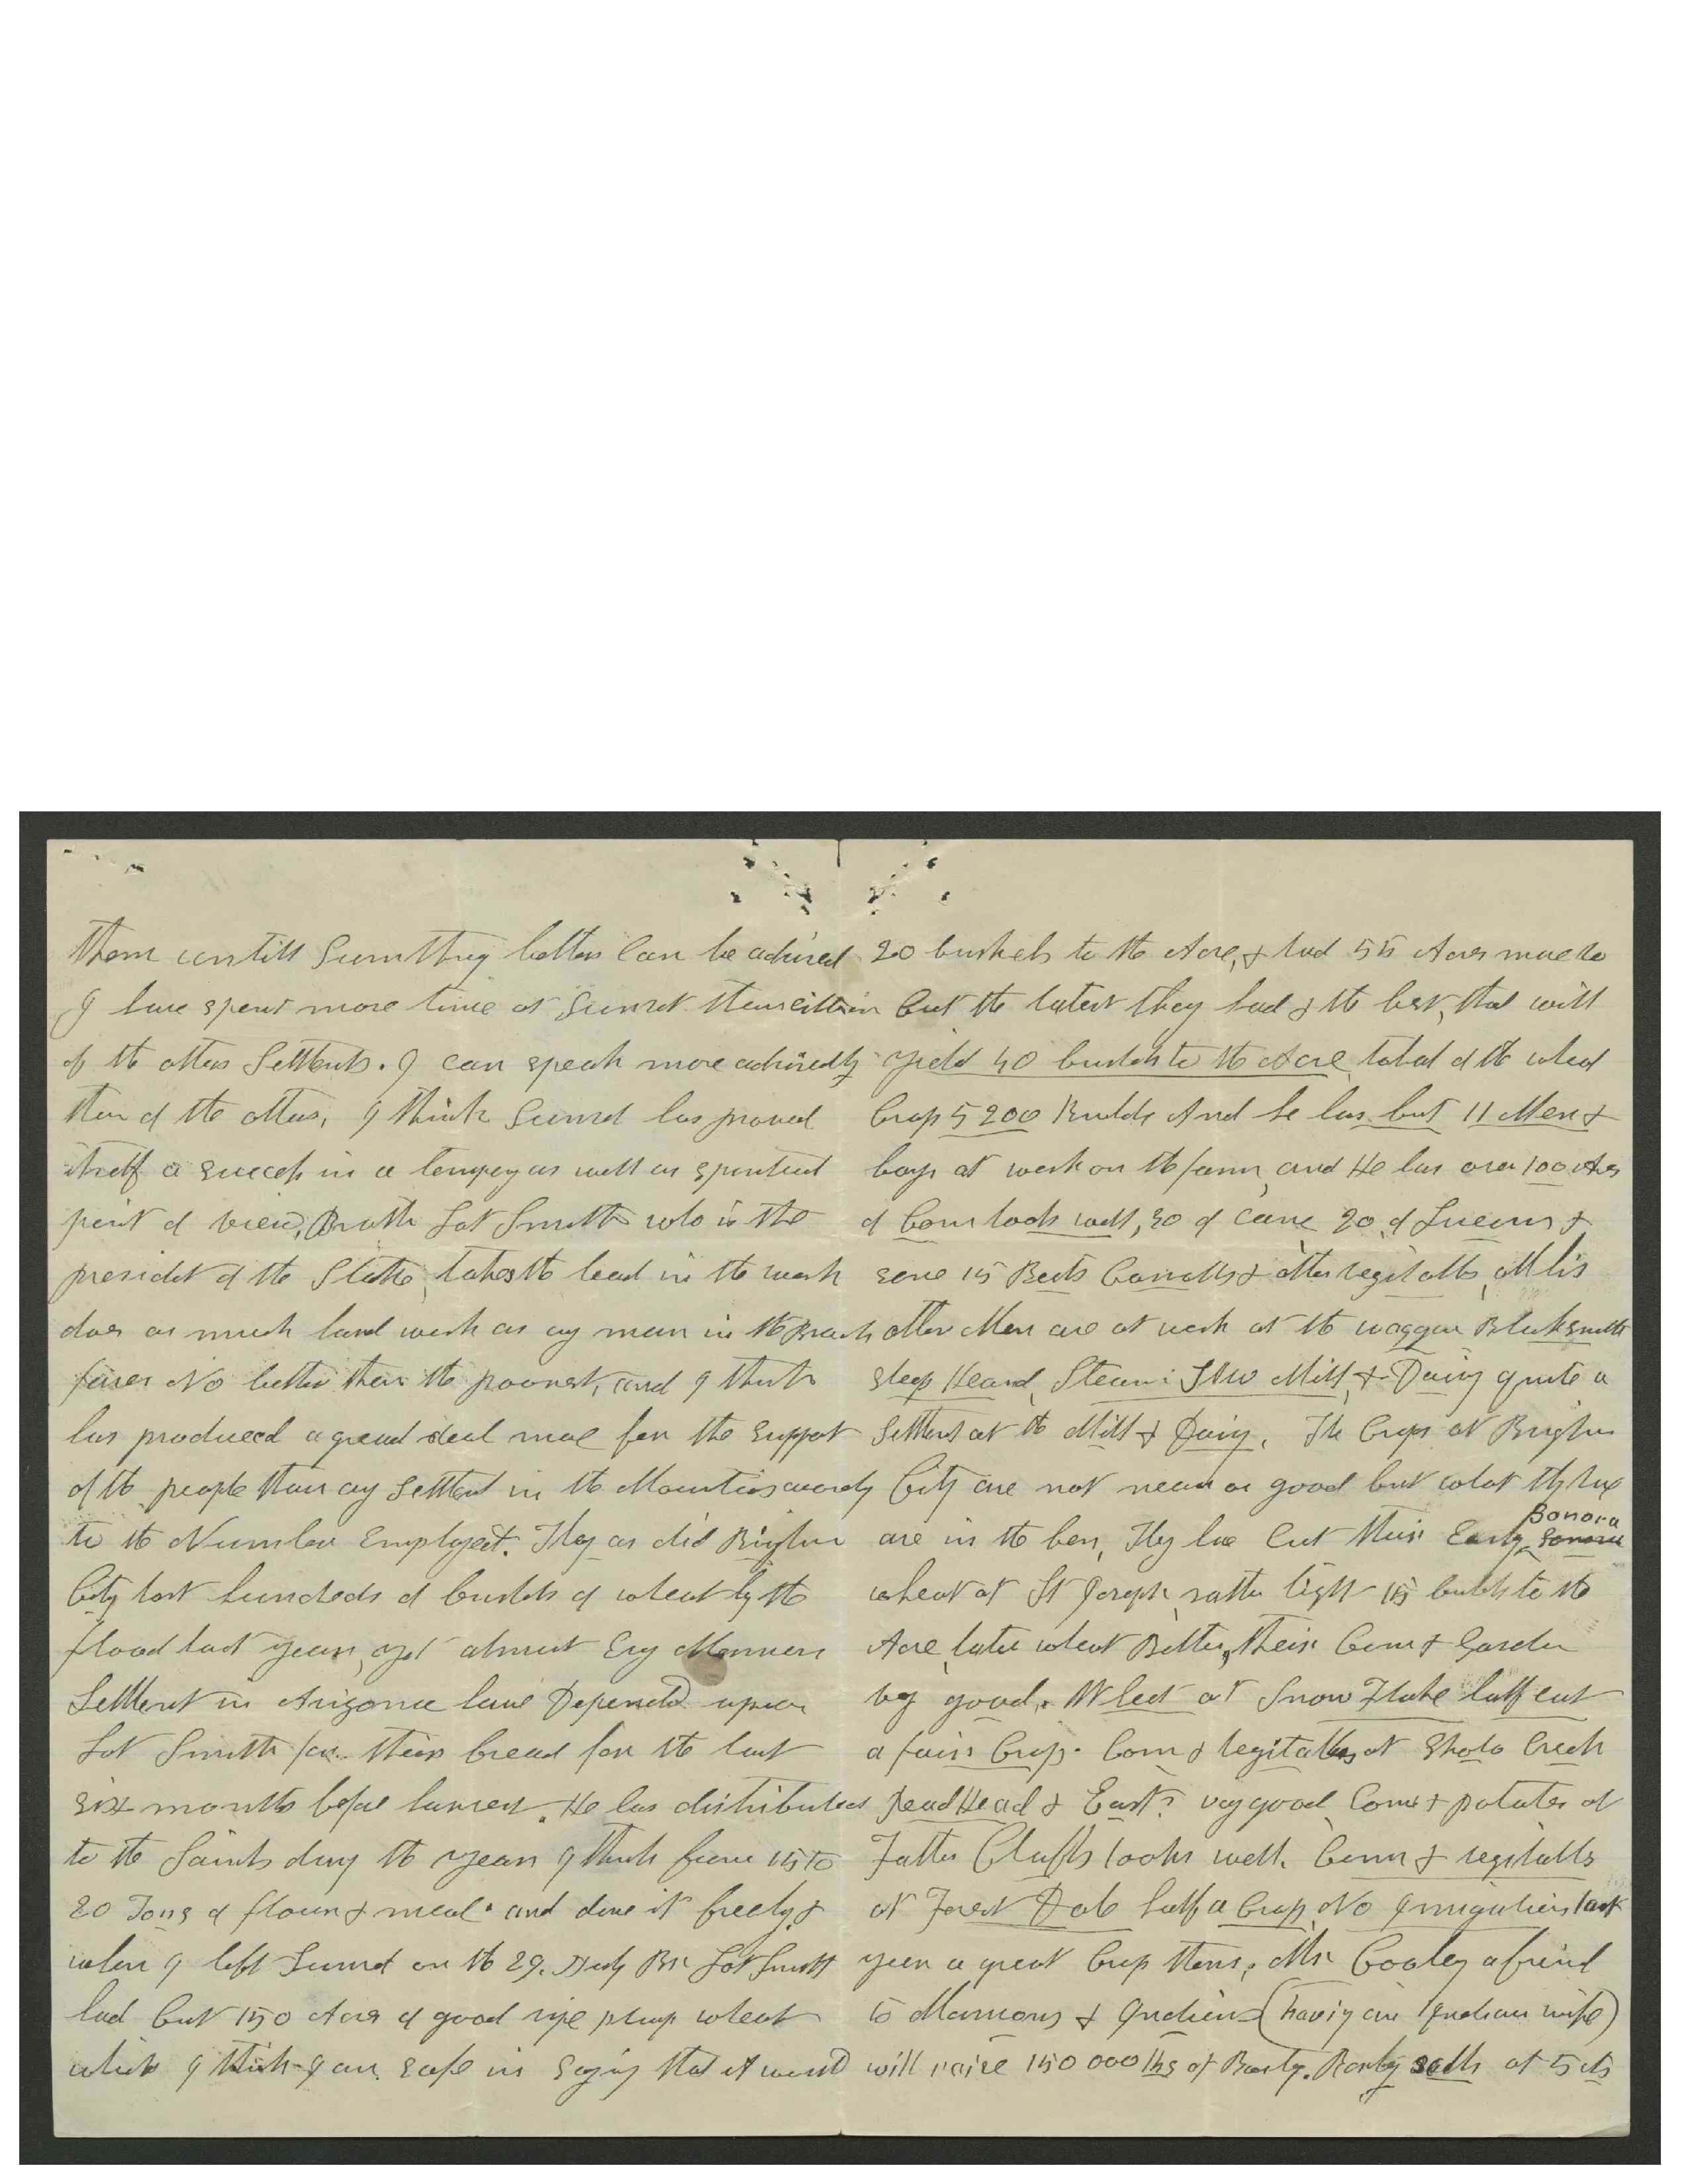 them untill Sumthing better Can be adviced
I have spent more time at Sunset than eitheir
of the others Settlents. I can speak more advisedly
than of the others, I think Sunset has proved
itself a success in a tempey as well as spiritual
point of view, Broth Lot Smith who is the
presidet of the Stake, takes the lead in the work
does as much hard work as any man in the Branch
fares No better then the poorest, and I think
has produced a great deal more for the Support
of the people than any Settlent in the Mountins acordg
to the Number Employed. They as did Brighm
City lost hundeds of bushls of wheat by the
flood last year, yet almost Evry Mormon
Settlent in Arizona have Depended upon
Lot Smith for their bread for the last
six months before harvest. He has distributed
to the Saints durg the year I think from 15 to
20 Tons of flour & meal. and done it freely, &
when I left Sunset on the 29. July Br. Lot Smith
had Cut 150 Acrs of good ripe plump wheat
which I think I am safe in Sayig that it would
20 bushels to the Acre, & had 55 Acres more to
Cut the latest they had & the best, that will
yield 40 bushls to the Acre, total of the wheat
Crop 5200 Bushls And he has but 11 Men &
boys at work on the farm, and He has over 100 Acrs
of Corn looks well, 30 of Cane 20, of Lucern &
some 15 Beets Carrotts & other vegitatbls, all his
other Men are at work at the waggon Blacksmith
sheep Heard, Steam Saw Mill, & Dairy quite a
Settlent at the Mill & Dairy. The Crops at Brighm
City are not near as good but what thy have
are in the ben, They have Cut their Early Sonora
Sonora
wheat at St Joseph, rather light 15 bushls to the
Acre, later wheat Better, their Corn & Garden
vry good. Wheat at Snow Flake half cut
a fair Crop. Corn & vegitatbles at Sholo Creek
Head & East? vry good Corn & potatoes at
Father Cluffs looks well. Corn & vegitatbls
at Forest Dale half a Crop, No Irrigation last
year a great Crop there, Mr Cooley a friend
to Mormons & Indians (havig an Indian wife)
will raise 150 000 lbs of Barly. Barly sells at 5 cts